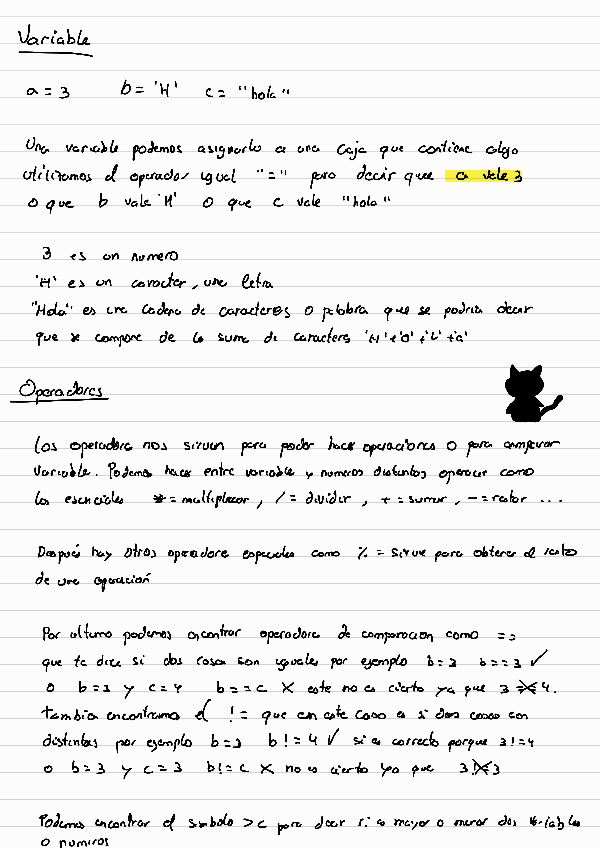 Variable
a = 3 b = 'H' c = "hola"
Una variable podemos asignarlo a una caja que contiene algo
utilizamos el operador igual "=" para decir que a vale 3
o que b vale 'H' o que c vale "hola"
3 es un numero
'H' es un caracter, una letra
"Hola" es una cadena de caracteres o palabra que se podria decir
que se compone de la suma de caracteres 'H'+'O'+'L'+'a'
Operadores
Los operadores nos sirven para poder hacer operaciones o para comparar
variable. Podemos hacer entre variable y numeros distintos operacion como
las esenciales * = multiplicar, / = dividir, + = sumar, - = restar ...
Después hay otros operadores especiales como % = sirve para obtener el resto
de una operación
Por ultimo podemos encontrar operadores de comparacion como ==
que te dice si dos cosas son iguales por ejemplo b=3 b==3 ✓
o b=3 y c=4 b==c X este no es cierto ya que 3 == 4.
tambien encontramos el != que en este caso es si dos cosas son
distintas por ejemplo b=3 b!=4 ✓ si es correcto porque 3!=4
o b=3 y c=3 b!=c X no es cierto ya que 3!=3
Podemos encontrar el simbolo >< para decir si es mayor o menor dos variables
o numeros